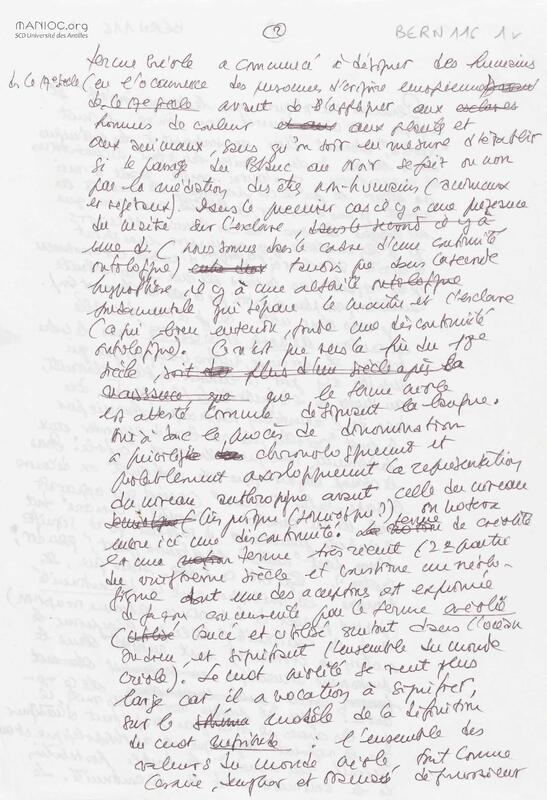 MANIOC.org
SCD Université des Antilles
(2)
BERN 116 1v
terme créole a commencé à désigner des humains
ds le 17e siècle (en l'occurrence des personnes d'origine européenne)
ds le 17e siècle avant de s'appliquer aux esclaves
hommes de couleur et aux aux plantes et
aux animaux sans qu'on soit en mesure d'établir
si le passage du Blanc au Noir se fait ou non
par la médiation des êtres non-humains (animaux
et végétaux). Dans le premier cas il y a une
du maître sur l'esclave, dans le second il y a
une di (nous sommes dans le cadre d'une continuité
ontologique) tandis que dans la seconde
hypothèse, il y a une altérité ontologique
fondamentale qui sépare le maître et l'esclave
(ce qui, bien entendu, fonde une discontinuité
ontologique). Ce n'est que vers la fin du 18e
siècle, soit plus d'un siècle après la
naissance que que le terme créole
est attesté comme désignant la langue.
On a donc le procès de dénomination
a priorisé chronologiquement et
probablement axiologiquement la représentation
du niveau anthropique avant celle du niveau
linguistique (glossique?) on notera
aussi ici une discontinuité. Le terme de créolité
est une notion terme très récent (2e partie
du vingtième siècle et constitue un néolo-
gisme dont une des acceptions est exprimée
de façon concurrente par le terme créolie
(utilisé lancé et utilisé surtout dans l'océan
Indien, et signifiant l'ensemble du monde
créole). Le mot créolité se veut plus
large car il a vocation à signifier,
sur le schéma modèle de la définition
du mot négritude : l'ensemble des
valeurs du monde créole, tout comme
Césaire, Senghor et Damas définissaient